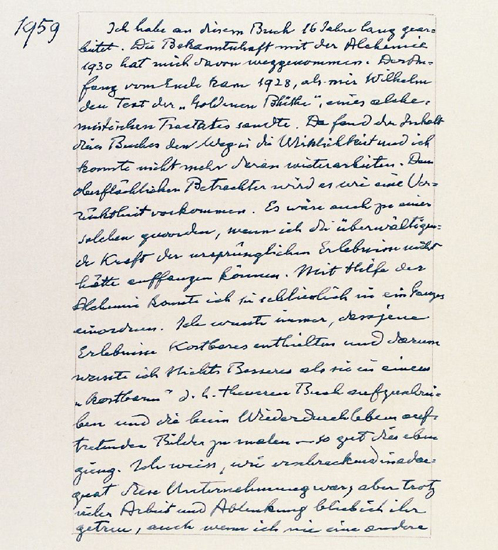 1959
Ich habe an diesem Buch 16 Jahre lang gear-
beitet. Die Bekanntschaft mit der Alchemie
1930 hat mich davon weggenommen. Der An-
fang vom Ende kam 1928, als mir Wilhelm
den Text der „Goldenen Blüthe“, eines alche-
mistischen Tractates sandte. Da fand der Inhalt
dieses Buches den Weg in die Wirklichkeit und ich
konnte nicht mehr daran weiterarbeiten. Dem
oberflächlichen Betrachter wird es wie eine Ver-
rücktheit vorkommen. Es wäre auch zu einer
solchen geworden, wenn ich die überwältigen-
de Kraft der ursprünglichen Erlebnisse nicht
hätte auffangen können. Mit Hilfe der
Alchemie konnte ich sie schliesslich in ein Ganzes
einordnen. Ich wusste immer, dass jene
Erlebnisse Kostbares enthielten und darum
wusste ich nichts Besseres als sie in einem
„kostbaren“ d. h. theuren Buch aufzuschrei-
ben und die beim Wiederdurchleben auf-
tretenden Bilder zu malen — so gut dies eben
ging. Ich weiss, wie erschreckend inadae-
quat diese Unternehmung war, aber trotz
vieler Arbeit und Ablenkung blieb ich ihr
getreu, auch wenn ich nie eine andere